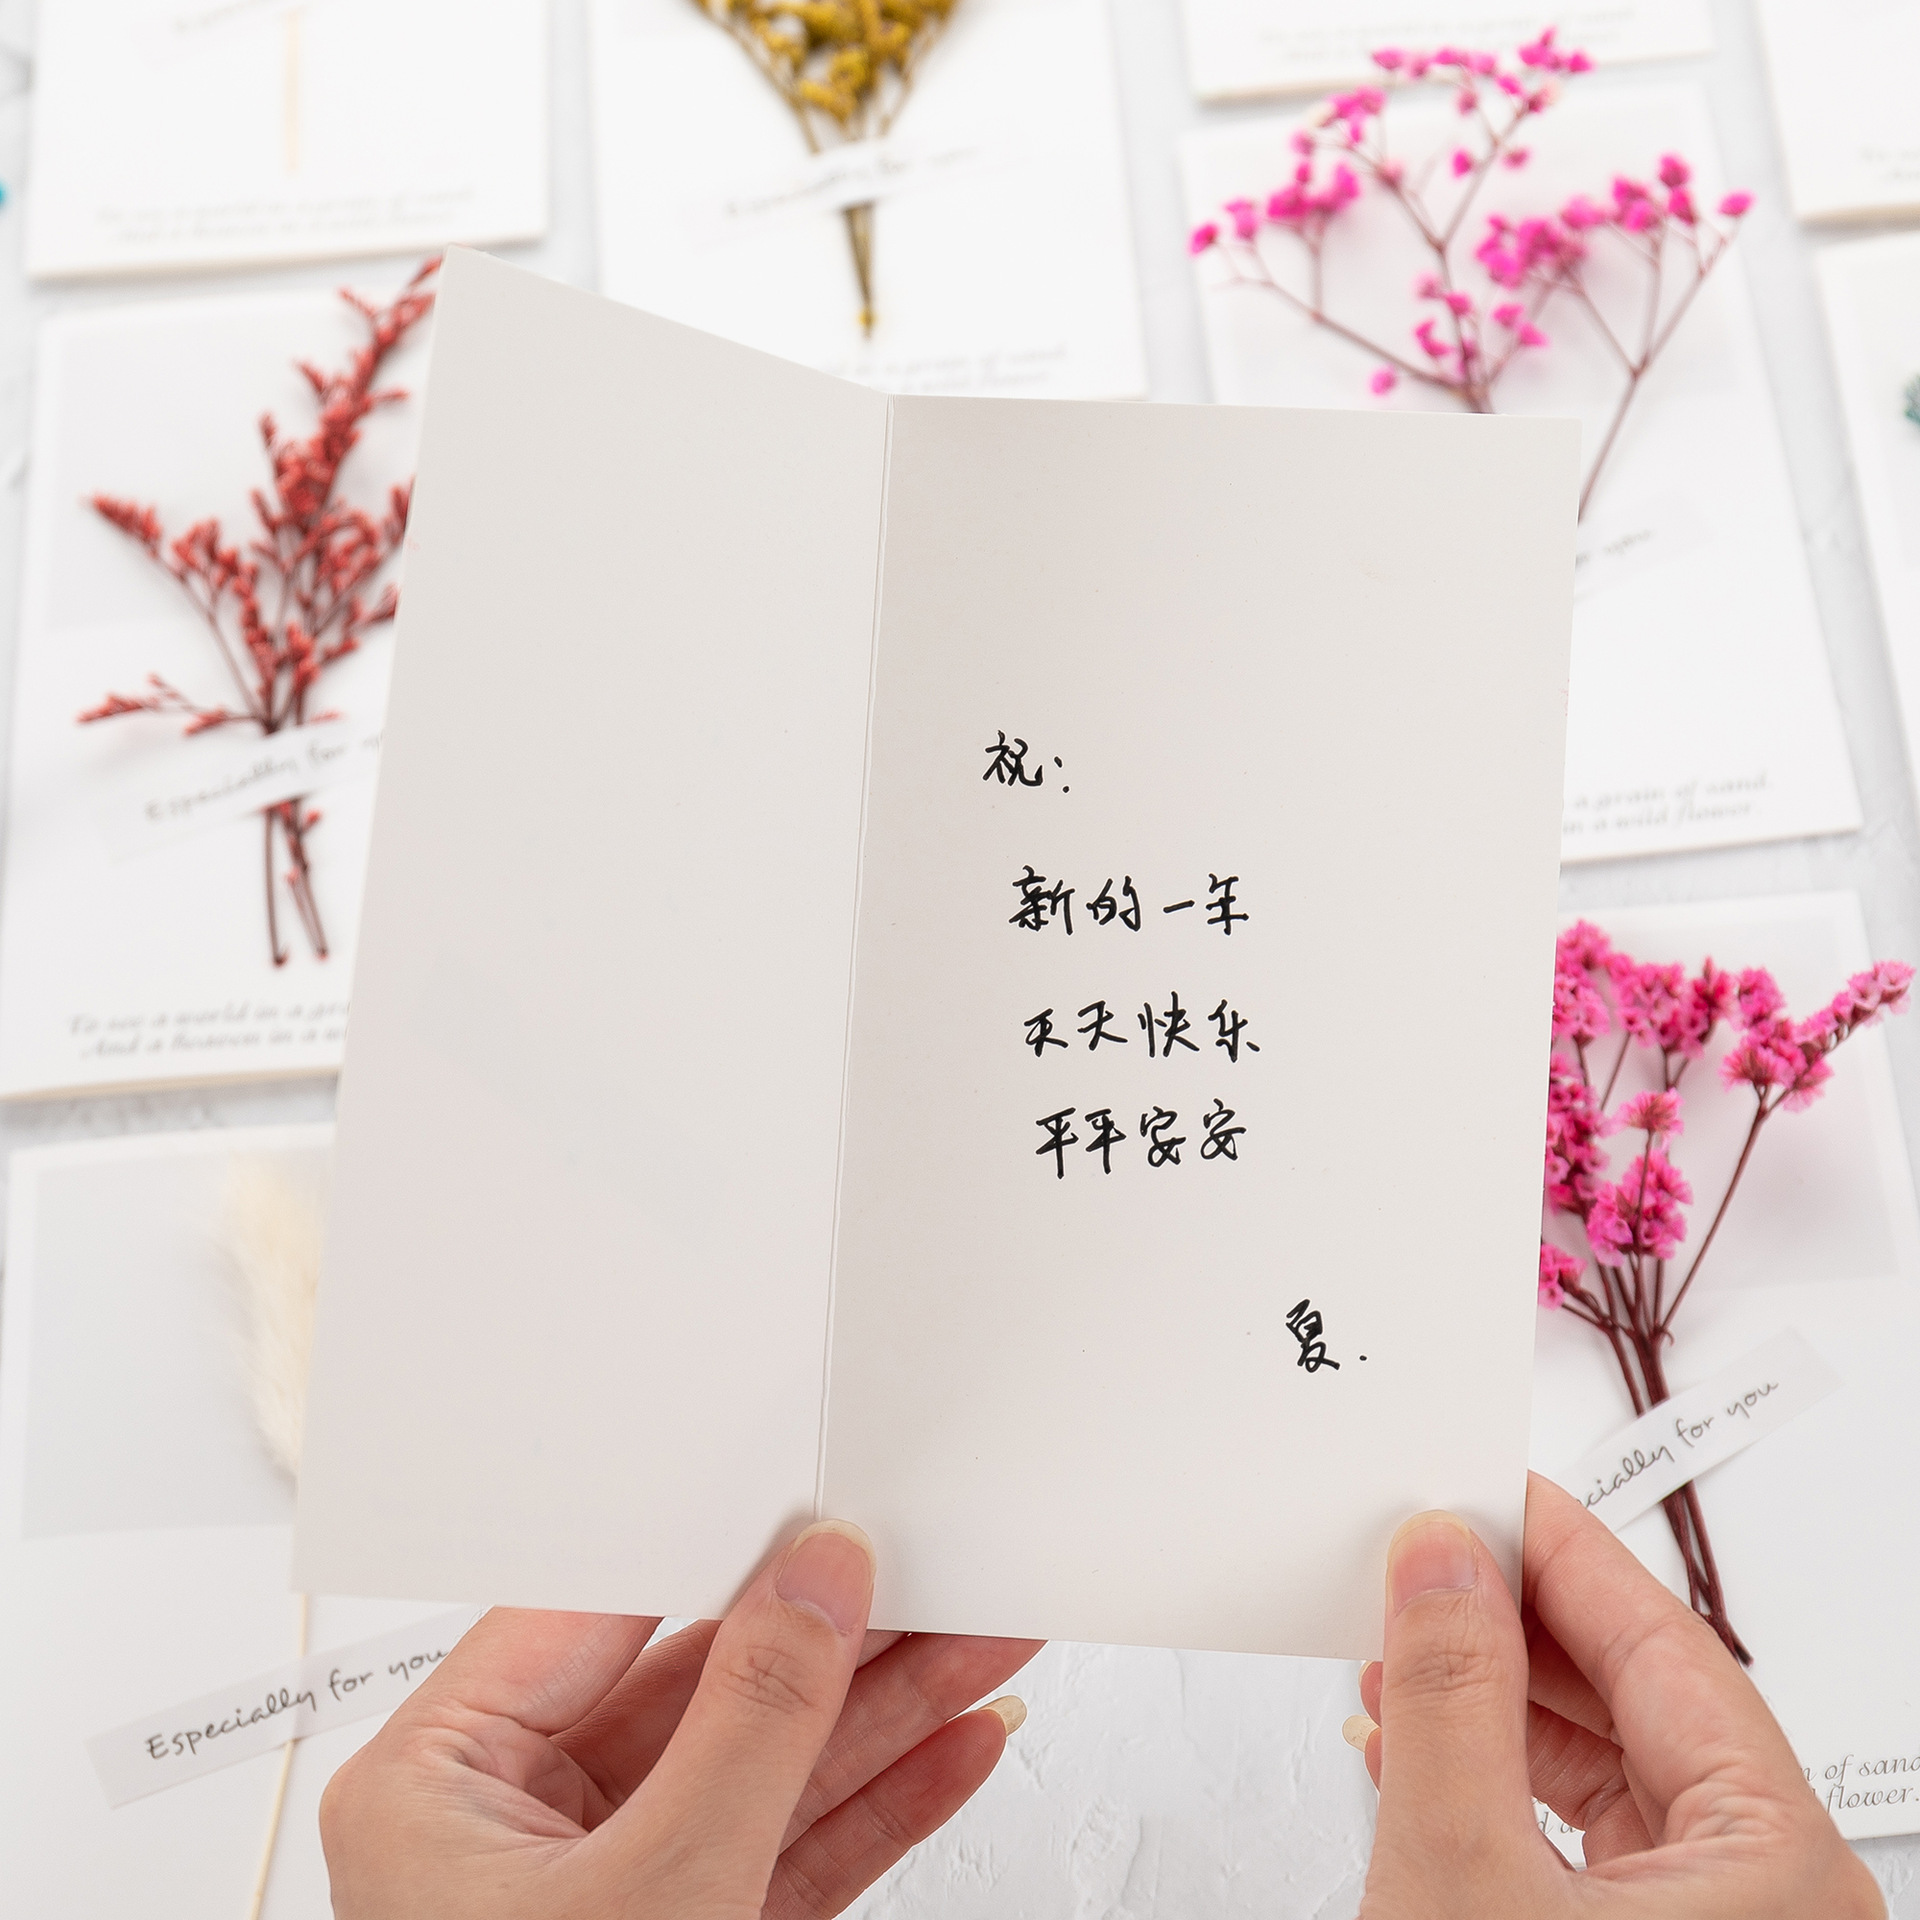 祝:
新的一年
天天快乐
平平安安
夏.
Especially for you
To see a world in a gra
And a heaven in a w
Especially for you
a grain of sand.
in a wild flower.
ecially for you
Especially for you
n of sand
flower.